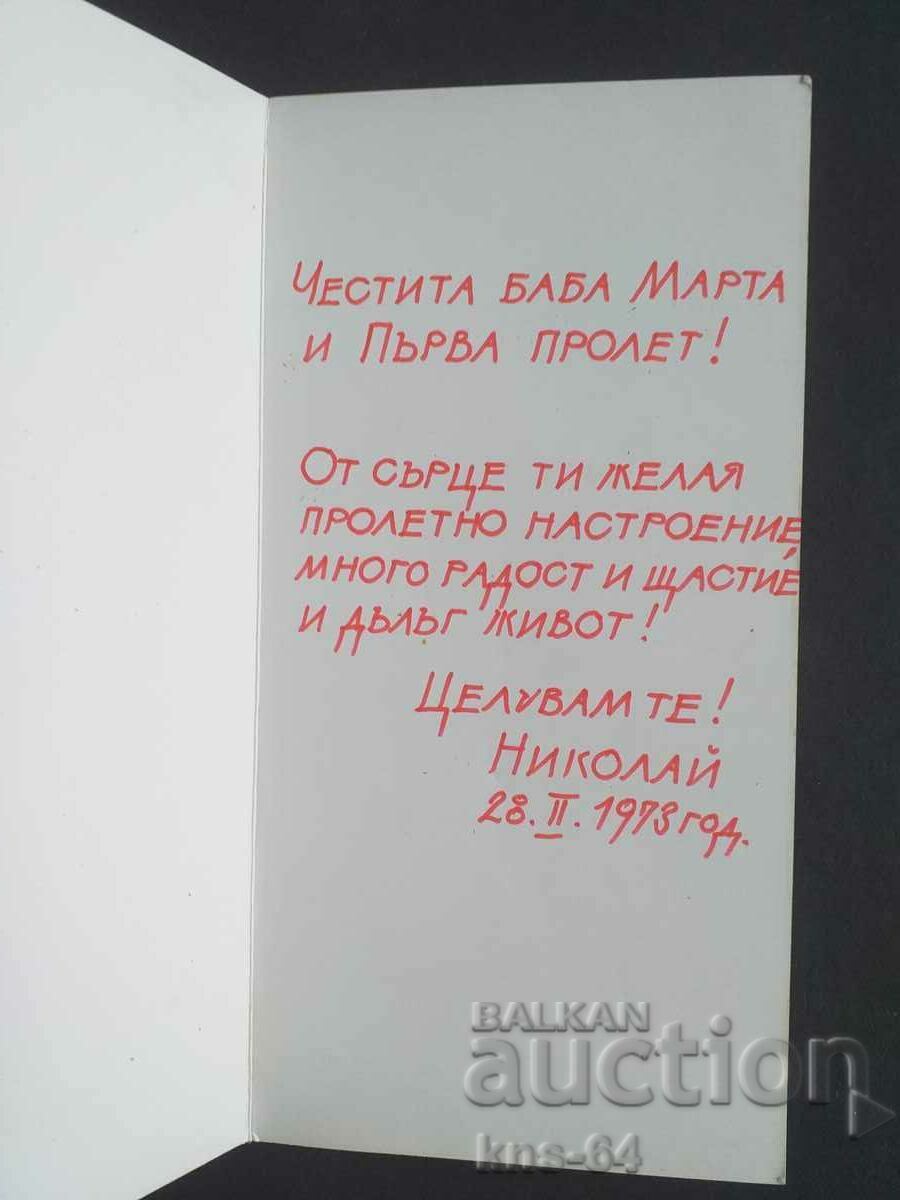 Честита баба Марта
и Първа пролет!
От сърце ти желая
пролетно настроение,
много радост и щастие
и дълъг живот!
Целувам те!
Николай
28.II.1973 год.
BALKAN
auction
kns-64